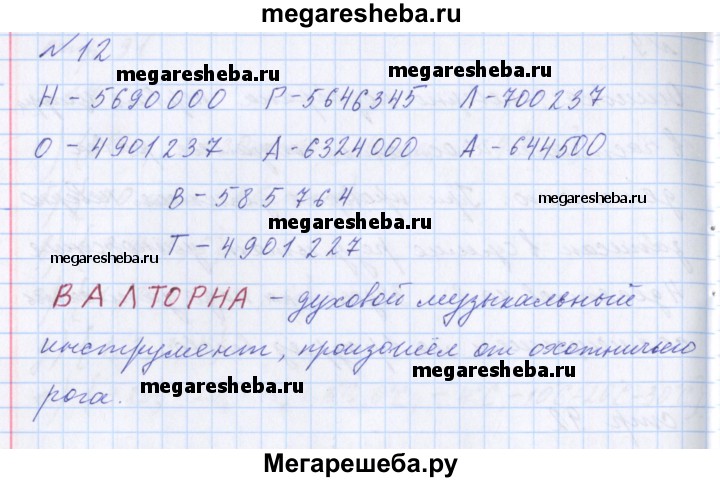 megaresheba.ru
№12
megaresheba.ru
megaresheba.ru
Н - 5690000 Р - 5646345 Л - 700237
О - 4901237 А - 6324000 А - 644500
В - 585764
megaresheba.ru
megaresheba.ru
Т - 4901227
megaresheba.ru
ВАЛТОРНА - духовой музыкальный
инструмент, произошёл от охотничьего
megaresheba.ru
megaresheba.ru
рога.
Мегарешеба.ру